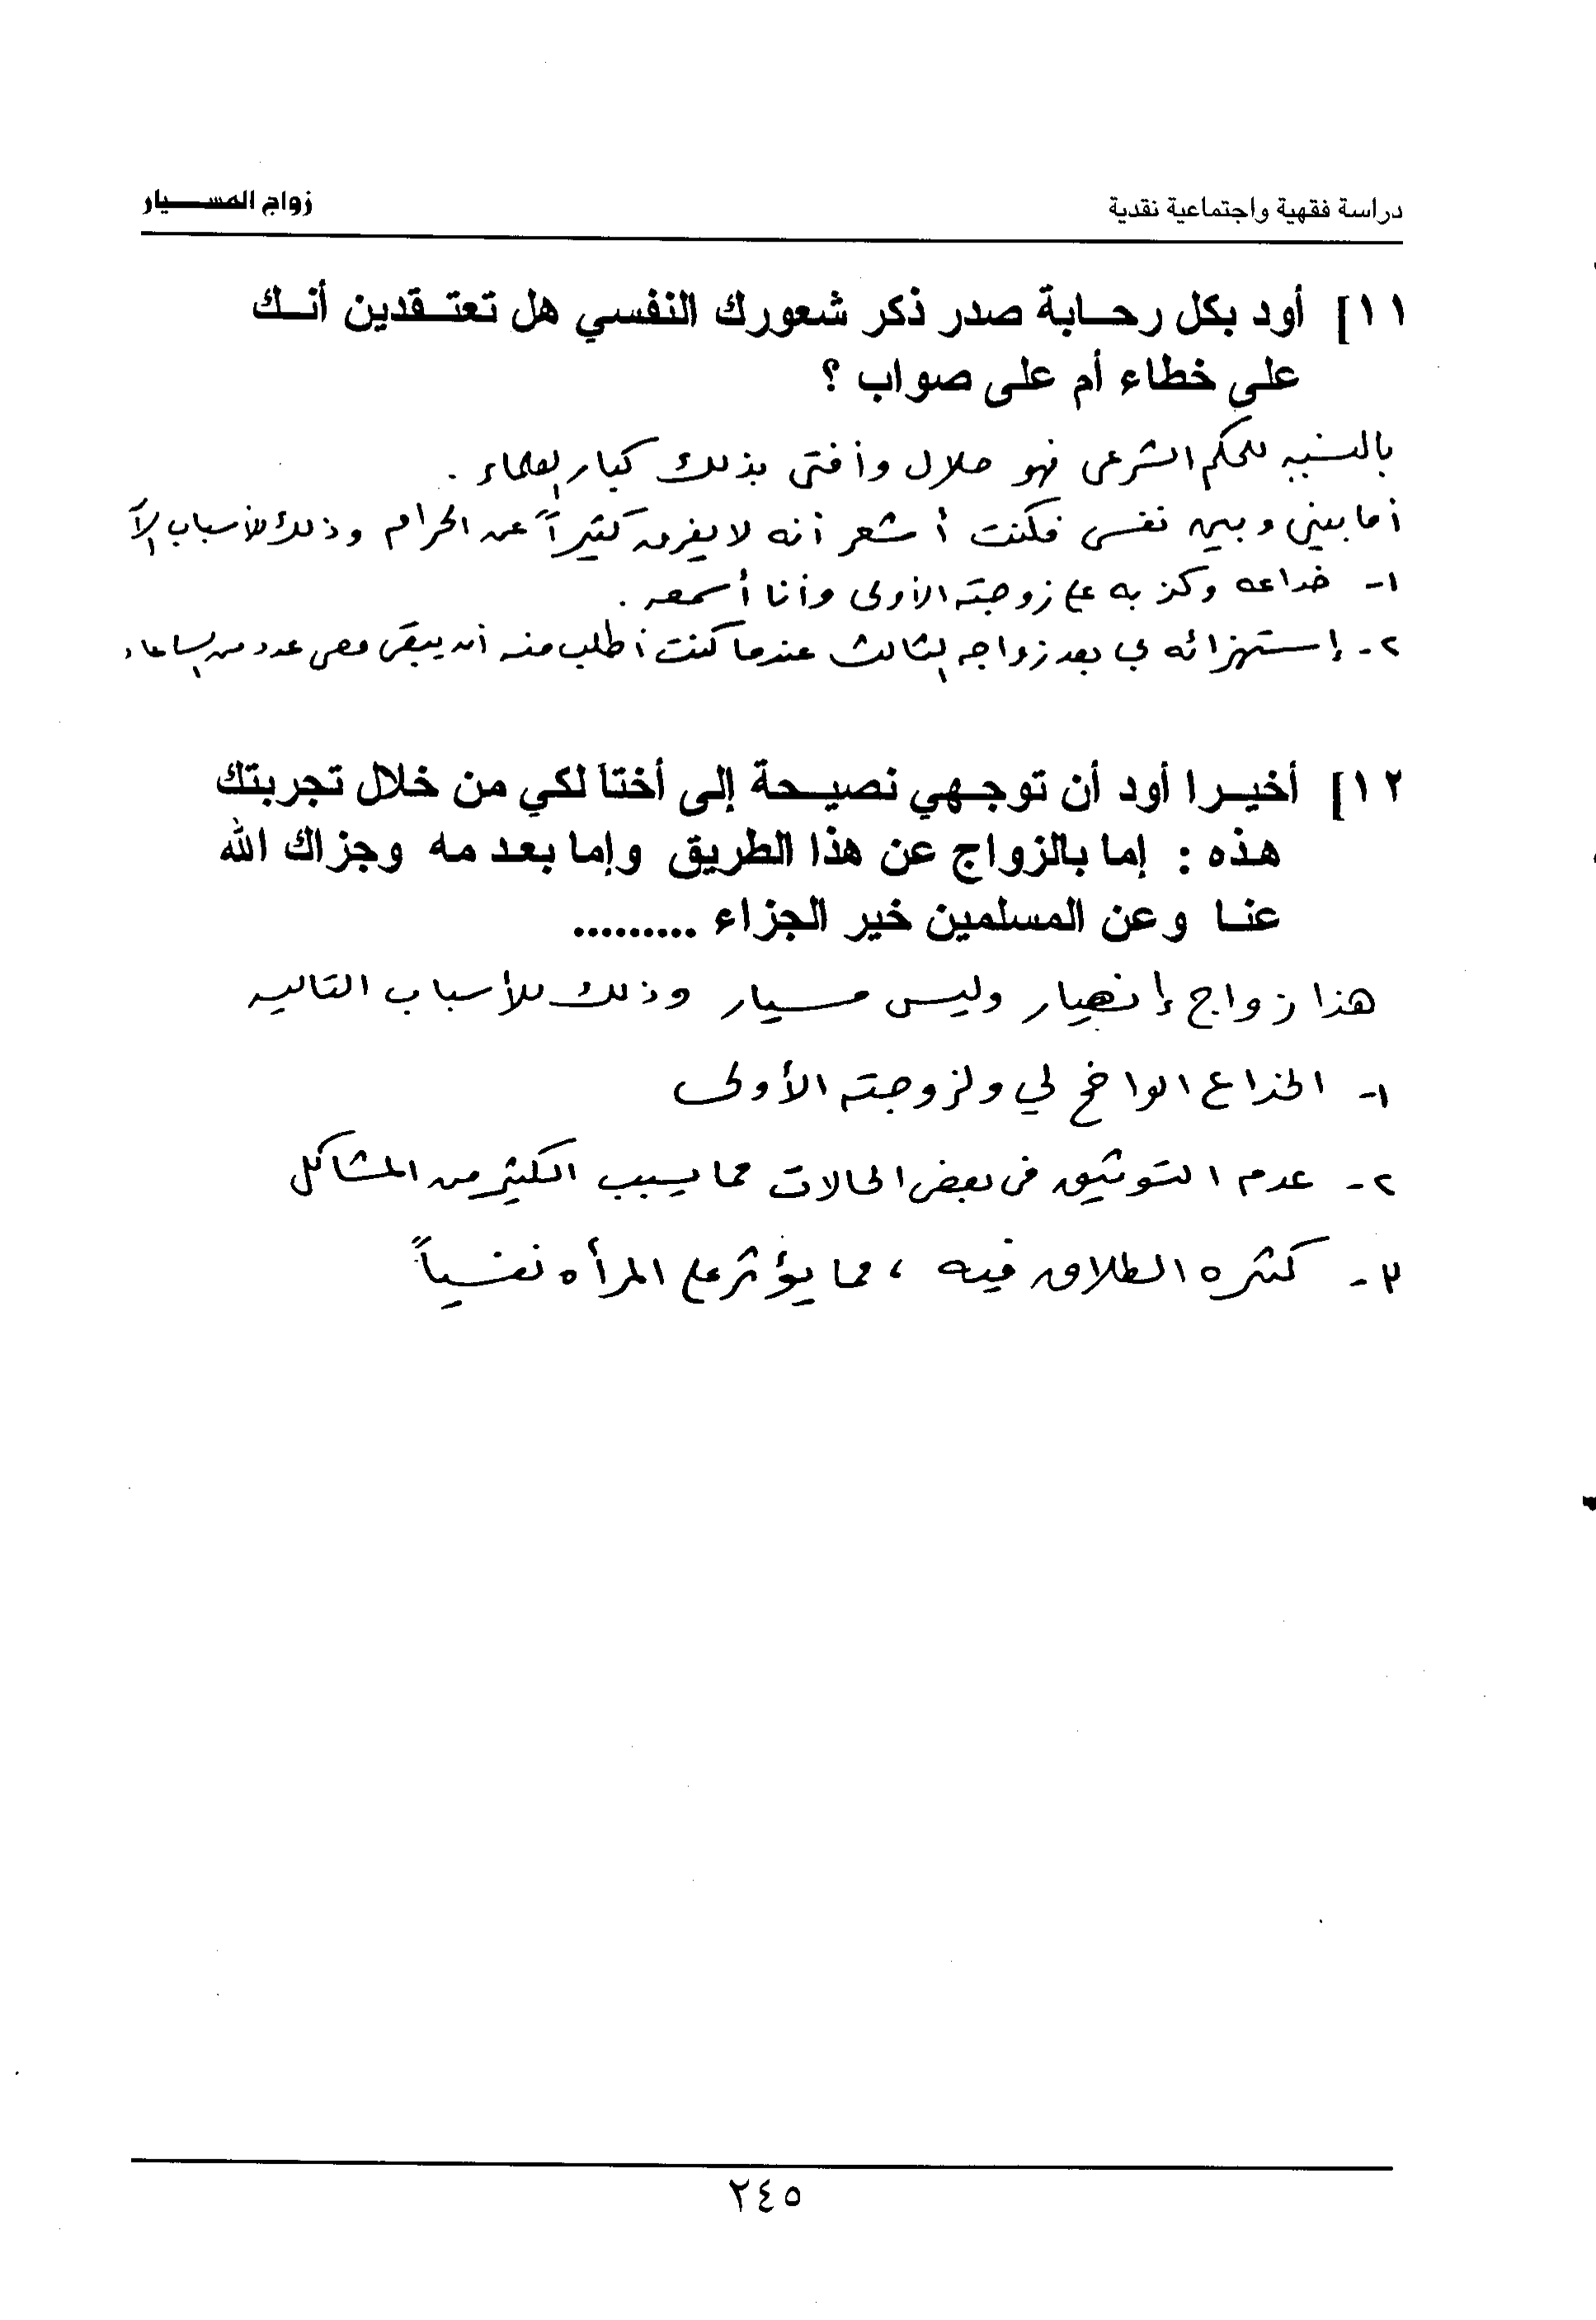 دراسة فقهية واجتماعية نقدية زواج المسيار
١١] أود بكل رحابة صدر ذكر شعورك النفسي هل تعتقدين أنك
على خطاء أم على صواب ؟
بالنسبه للحكم الشرعي فهو حلال وأفتى بذلك كبار العلماء .
أما بيني وبين نفسي فكنت أشعر أنه لا يفرق كثيراً عن الحرام وذلك للأسباب
١- خداعه وكذبه على زوجته الأولى وأنا أسمعه .
٢- إستهزائه بي بعد زواجه الثالث عندما كنت أطلب منه أن يبقى معي عدد من الساعات
١٢] أخيرا أود أن توجهي نصيحة إلى أختا لكي من خلال تجربتك
هذه : إما بالزواج عن هذا الطريق وإما بعدمه وجزاك الله
عنا وعن المسلمين خير الجزاء .........
هذا زواج إنهيار وليس مسيار وذلك للأسباب التاليه
١- الخداع الواضح لي ولزوجته الأولى
٢- عدم التوثيق في بعض الحالات مما يسبب الكثير من المشاكل
٣- كثره الطلاق فيه ، مما يؤثر على المرأه نفسياً
٢٤٥